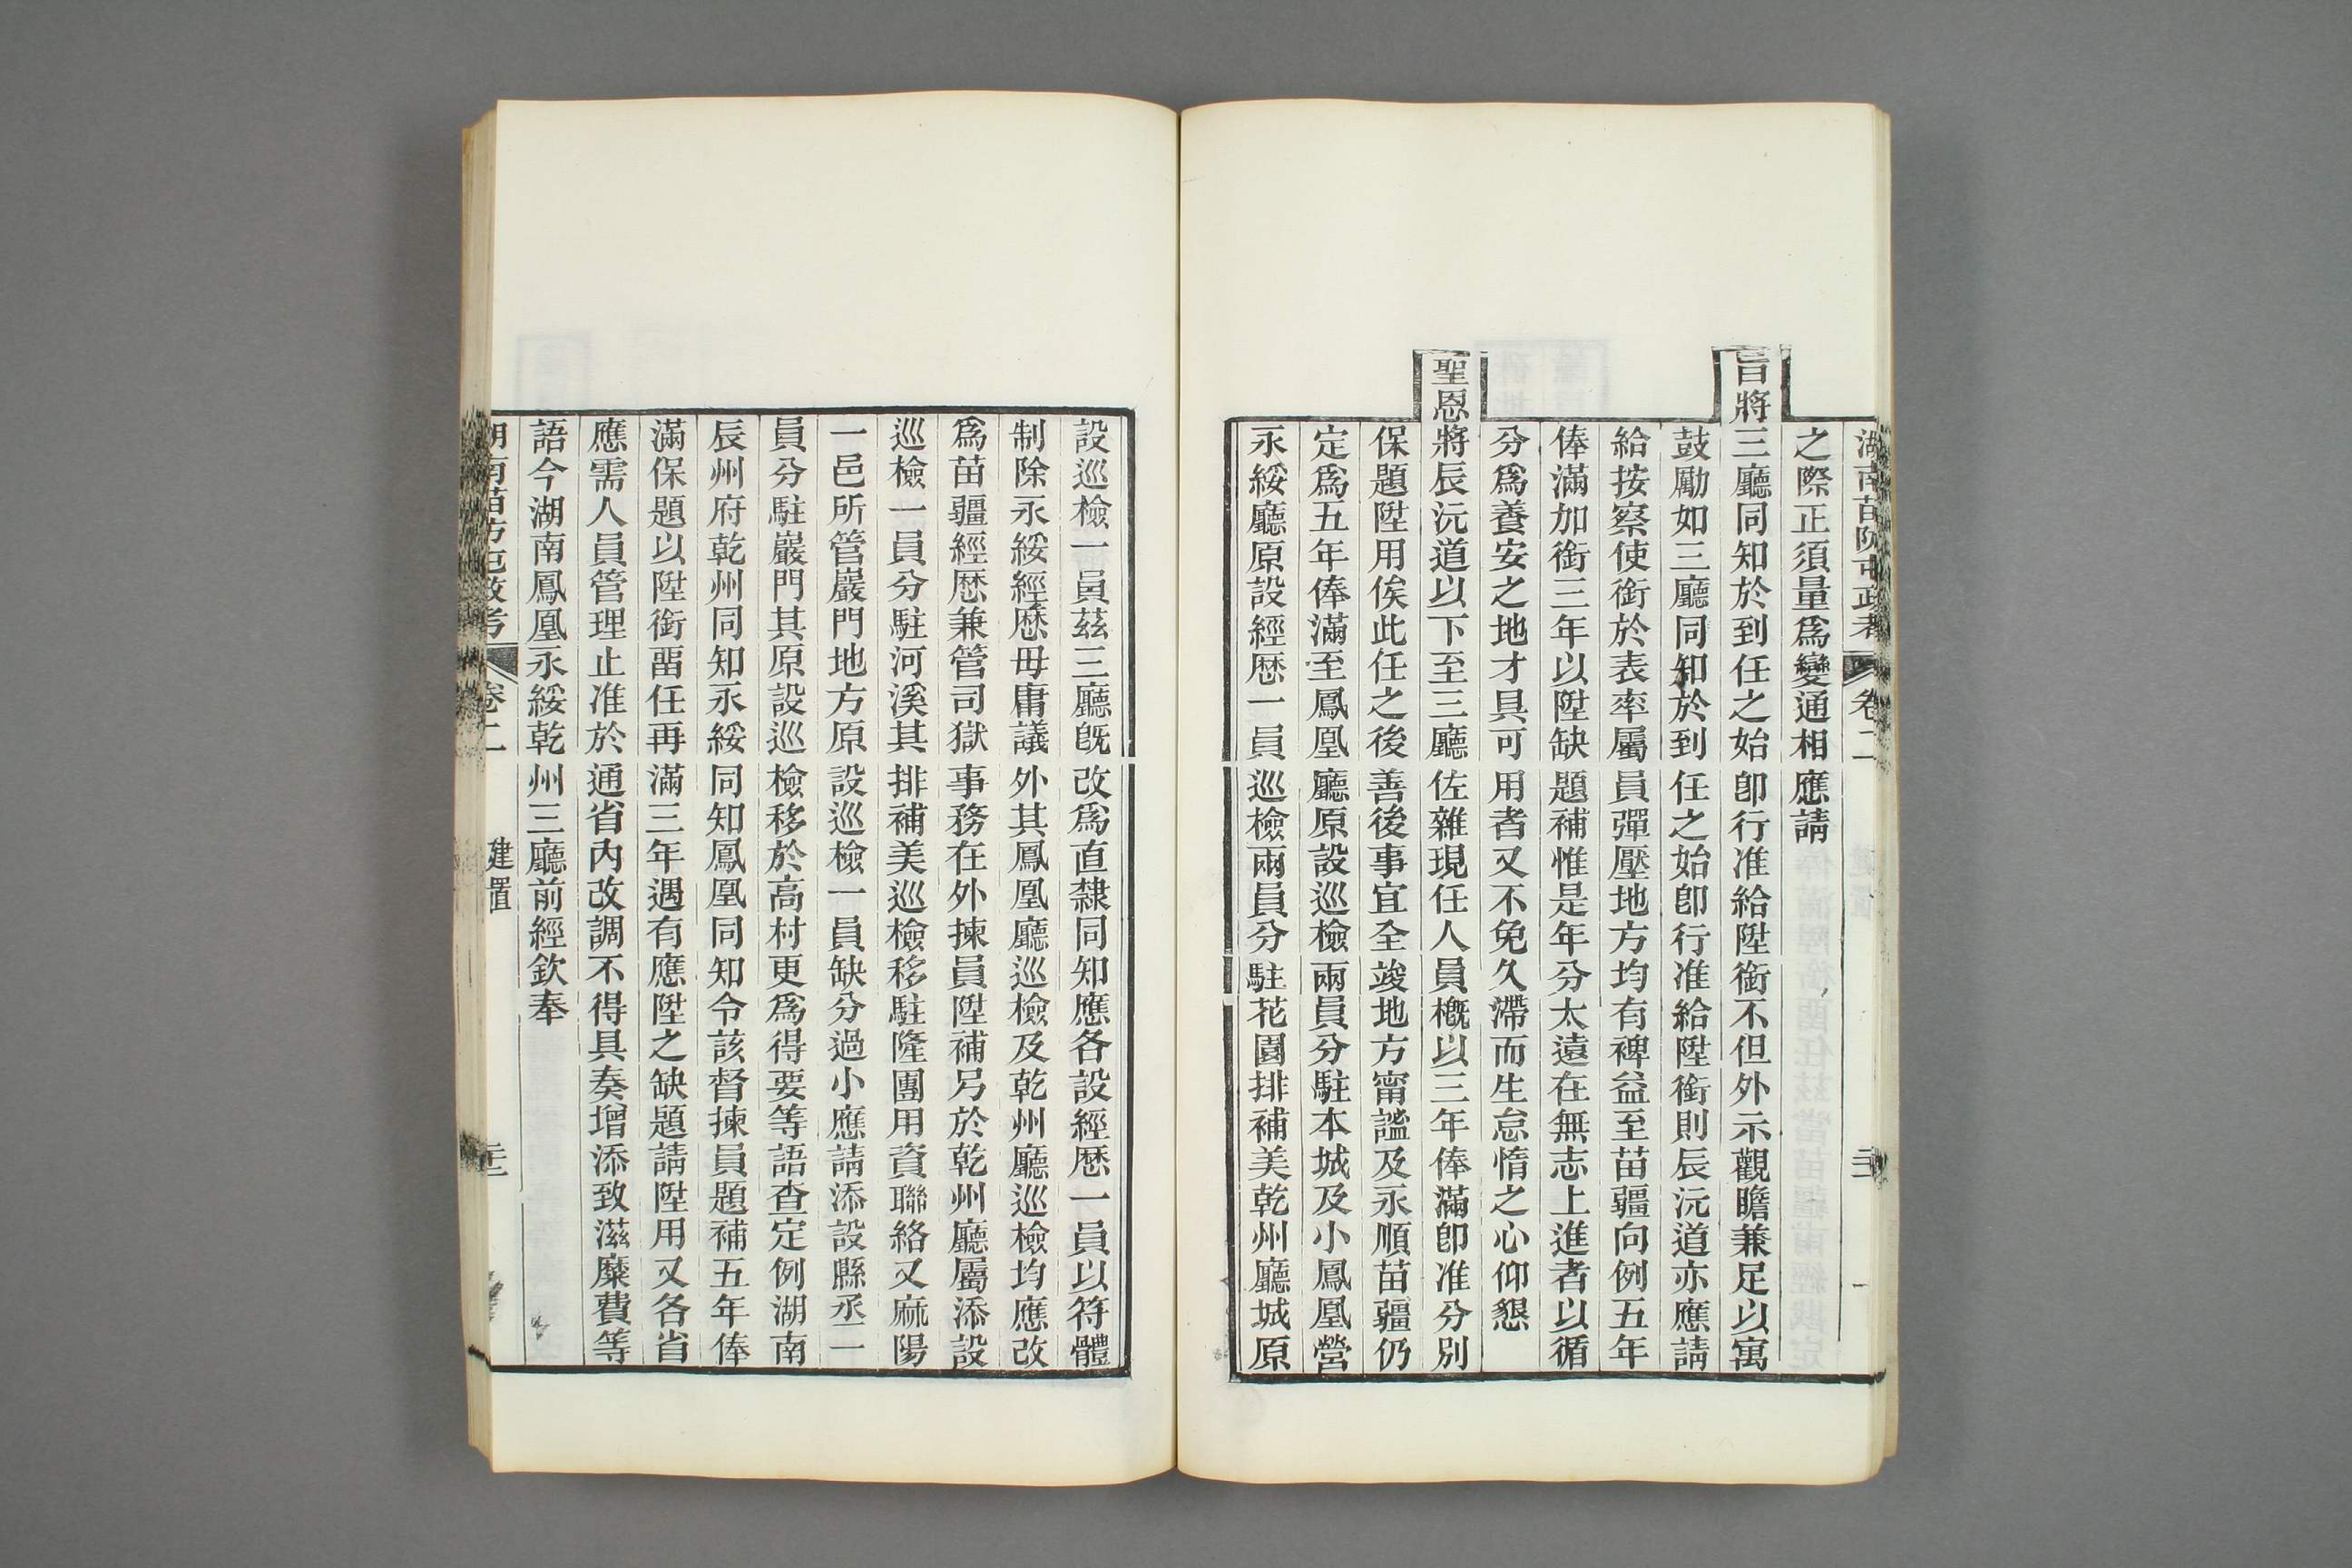 湖南苗防屯政考 卷二
之際正須量爲變通相應請
旨將三廳同知於到任之始卽行准給陞銜不但外示觀瞻兼足以寓
鼓勵如三廳同知於到任之始卽行准給陞銜則辰沅道亦應請
給按察使銜於表率屬員彈壓地方均有裨益至苗疆向例五年
俸滿加銜三年以陞缺題補惟是年分太遠在無志上進者以循
分爲養安之地才具可用者又不免久滯而生怠惰之心仰懇
聖恩將辰沅道以下至三廳佐雜現任人員槪以三年俸滿卽准分別
保題陞用俟此任之後善後事宜全竣地方甯謐及永順苗疆仍
定爲五年俸滿至鳳凰廳原設巡檢兩員分駐本城及小鳳凰營
永綏廳原設經歷一員巡檢兩員分駐花園排補美乾州廳城原
設巡檢一員茲三廳旣改爲直隸同知應各設經歷一員以符體
制除永綏經歷毋庸議外其鳳凰廳巡檢及乾州廳巡檢均應改
爲苗疆經歷兼管司獄事務在外揀員陞補另於乾州廳屬添設
巡檢一員分駐河溪其排補美巡檢移駐隆團用資聯絡又麻陽
一邑所管巖門地方原設巡檢一員缺分過小應請添設縣丞一
員分駐巖門其原設巡檢移於高村更爲得要等語查定例湖南
辰州府乾州同知永綏同知鳳凰同知令該督揀員題補五年俸
滿保題以陞銜畱任再滿三年遇有應陞之缺題請陞用又各省
應需人員管理止准於通省內改調不得具奏增添致滋糜費等
語今湖南鳳凰永綏乾州三廳前經欽奉
湖南苗防屯政考 卷二 建置